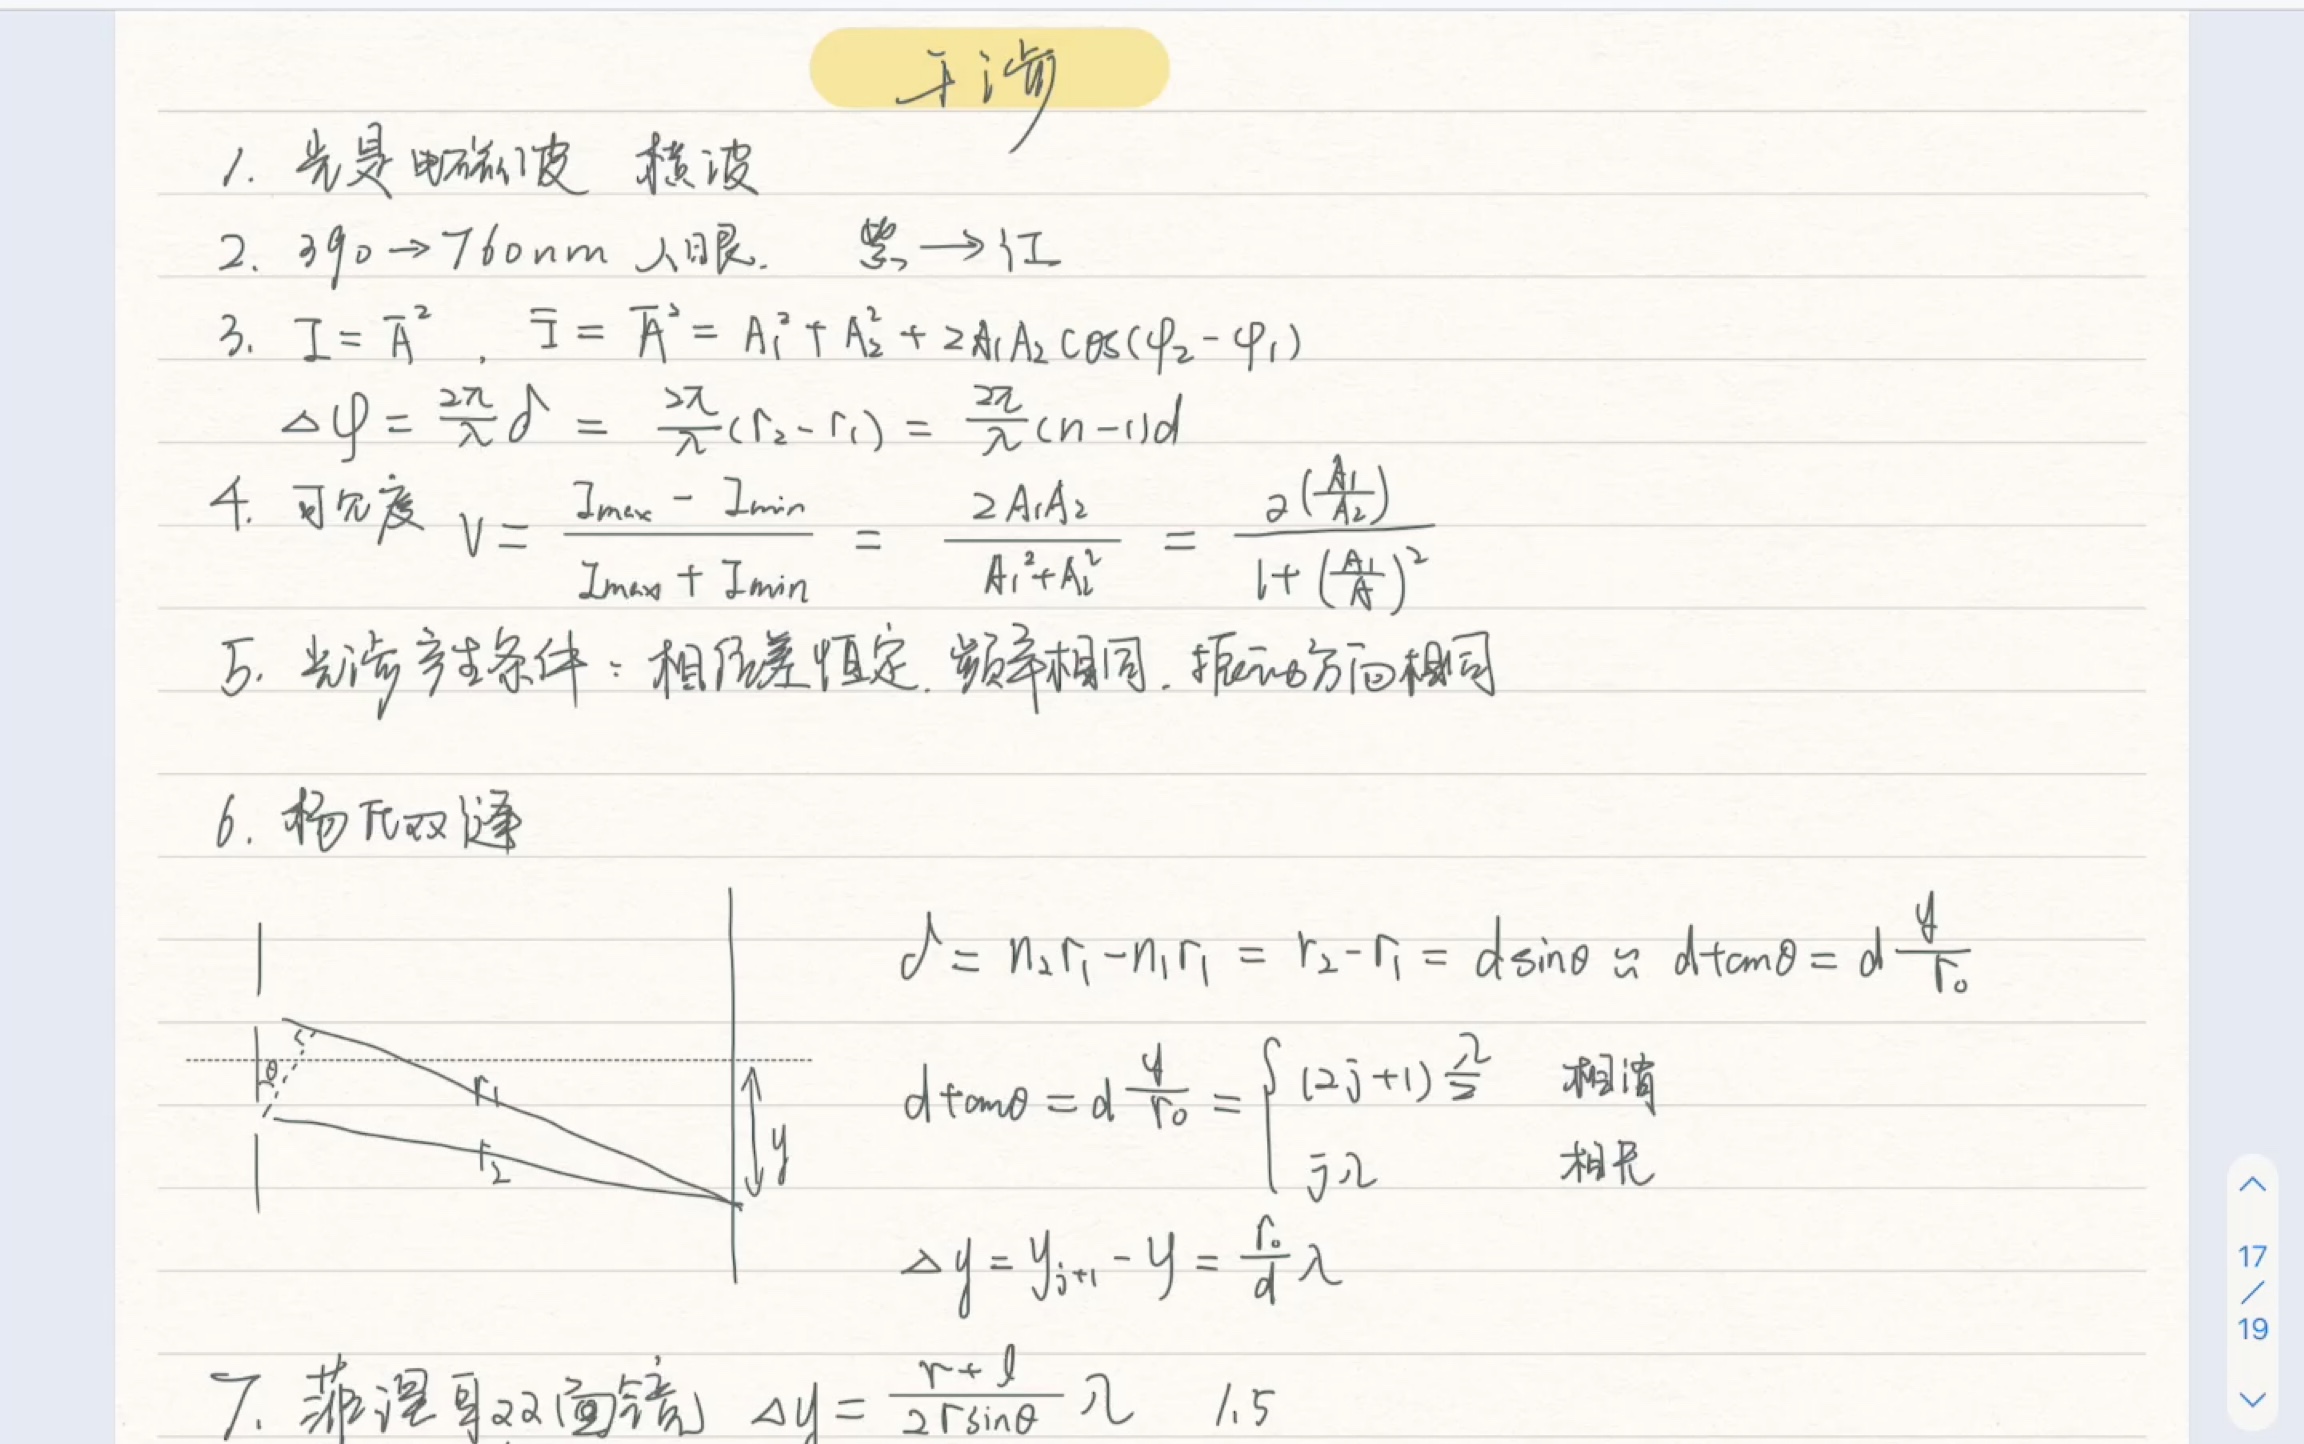 干涉
1. 光是电磁波 横波
2. 390→760nm 人眼. 紫→红
3. I = Ā², Ī = Ā² = A₁² + A₂² + 2A₁A₂cos(φ₂-φ₁)
△φ = 2π/λ δ = 2π/λ (r₂-r₁) = 2π/λ (n-1)d
4. 可见度 V = (Imax - Imin)/(Imax + Imin) = 2A₁A₂/(A₁²+A₂²) = 2(A₁/A₂)/(1+(A₁/A)²)
5. 光涉产生条件：相位差恒定. 频率相同. 振动方向相同
6. 杨氏双缝
δ = n₂r₁-n₁r₁ = r₂-r₁ = dsinθ ≈ dtanθ = d y/r₀
θ
r₁
r₂
y
dtanθ = d y/r₀ = { (2j+1) λ/2 相消
jλ 相长
△y = yⱼ₊₁ - y = r₀/d λ
7. 菲涅耳双面镜 △y = (r+l)/(2rsinθ) λ 1.5
17
/
19